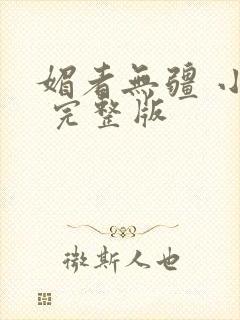 媚者無疆 小
完整版
微斯人也